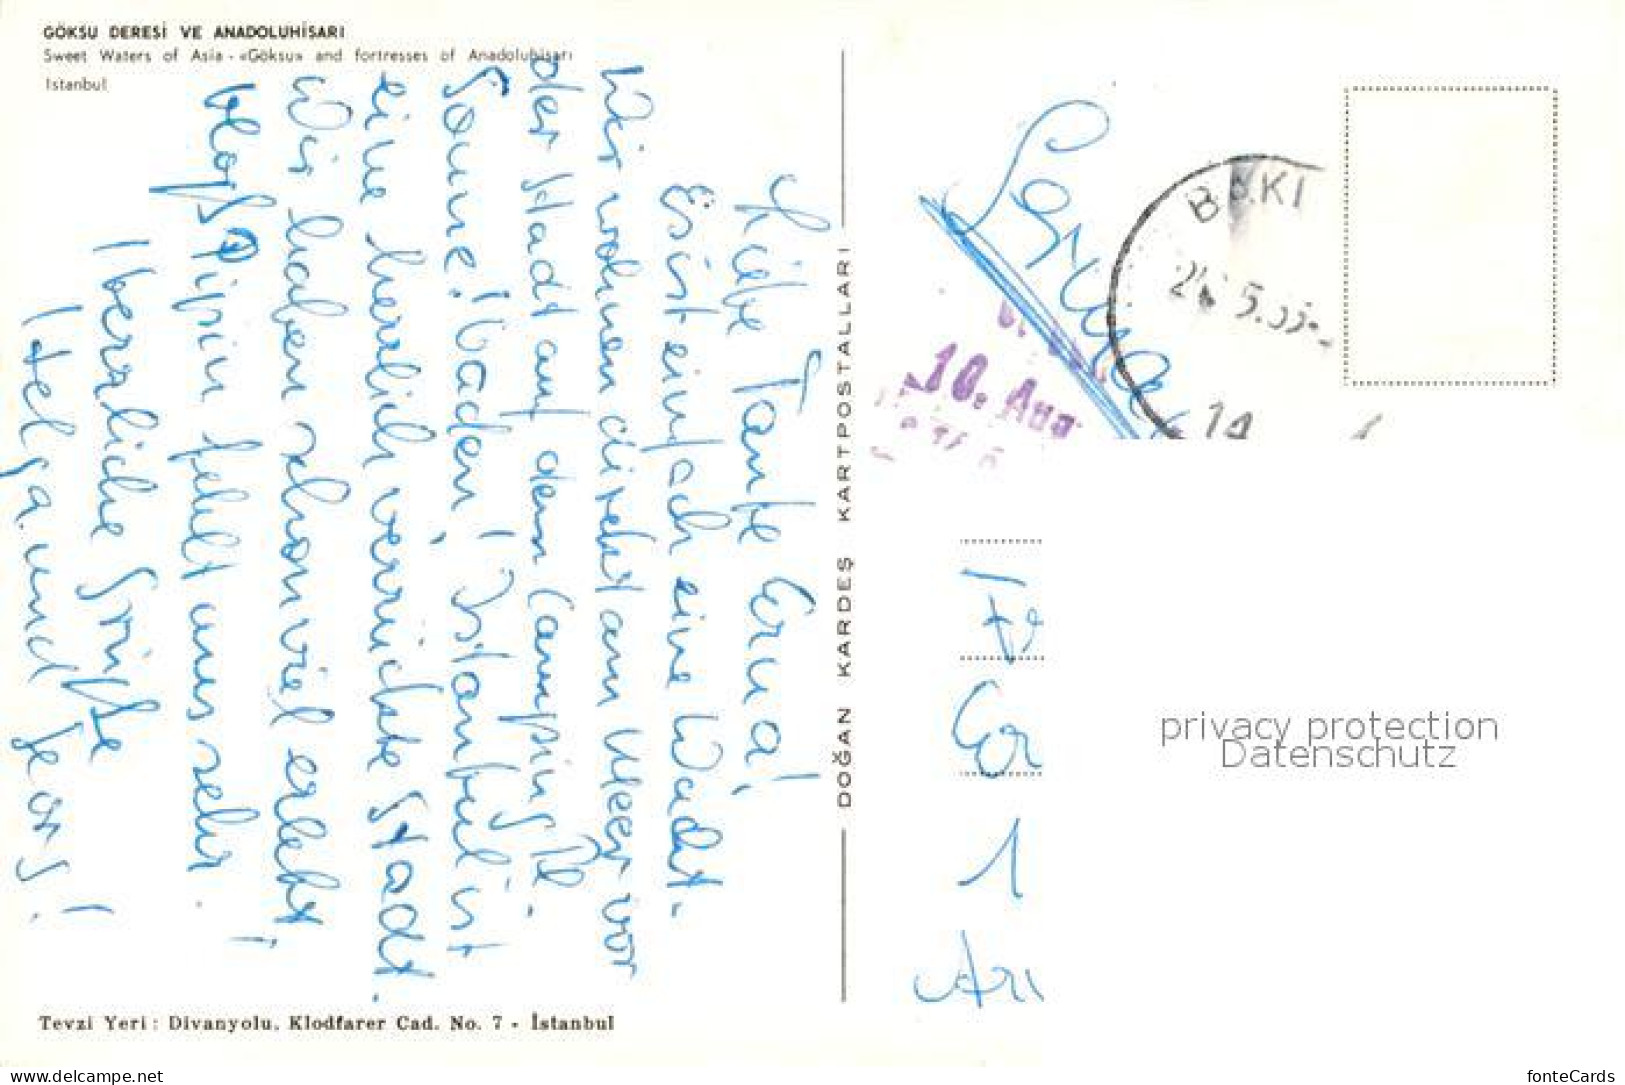 GÖKSU DERESİ VE ANADOLUHİSARI
Sweet Waters of Asia - «Göksu» and fortresses of Anadoluhisarı
Istanbul
Liebe Tante Erna!
Es ist einfach eine Wucht.
Wir wohnen direkt am Meer vor
der Stadt auf dem Camping Pl.
Sonne! baden! Istanbul ist
eine herrlich verrückte Stadt.
Wir haben schon viel erlebt,
bloß Pipin fehlt uns sehr!
Herzliche Grüße
Helga und Jens!
DOĞAN KARDEŞ KARTPOSTALLARI
BAKI
10. Aug
14
Er
1
privacy protection
Datenschutz
Tevzi Yeri: Divanyolu, Klodfarer Cad. No. 7 - İstanbul
www.delcampe.net
fonteCards